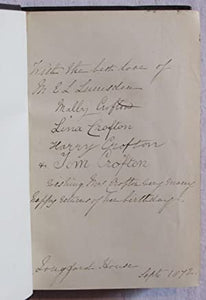 With the best love of
M E L Lumsden
Mally Crofton
Lina Crofton
Harry Crofton
& Tom Crofton
Wishing Mrs Crofton very many
happy returns of her birthday.
Longford House
Sept. 1872